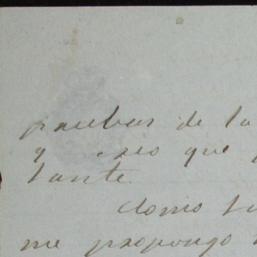 pruebas de la
y creo que
tante.
Como tu
me propongo